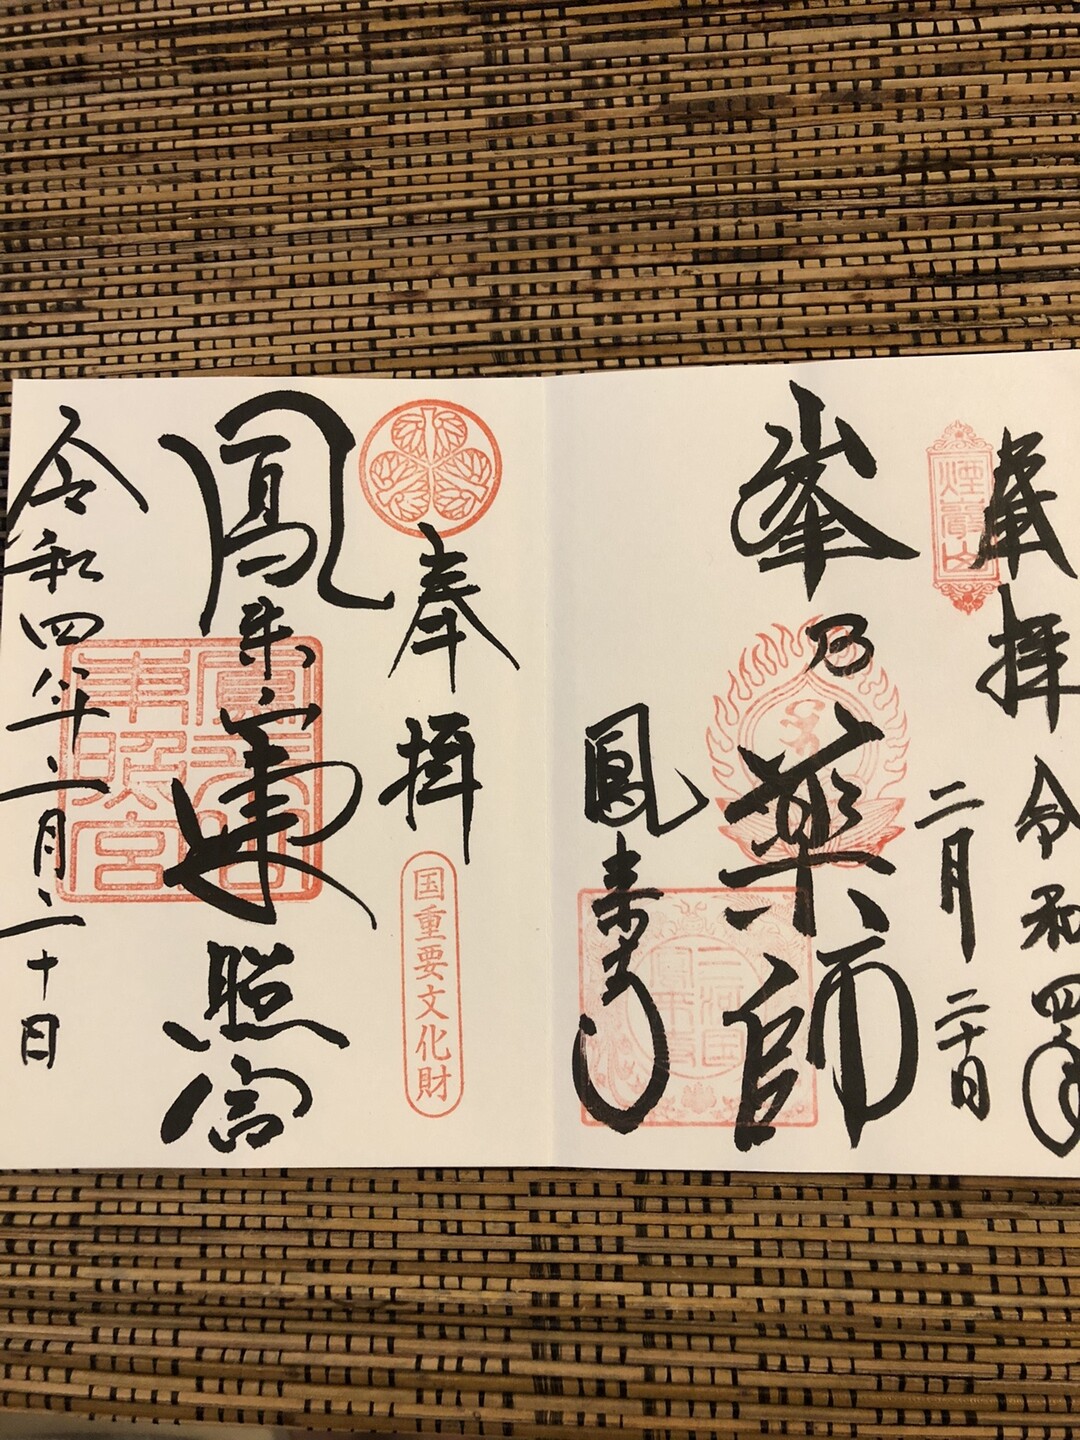 奉拝
令和四年
二月二十日
煙巌山
峯乃薬師
三河国
鳳来寺
鳳来寺
奉拝
国重要文化財
鳳来山東照宮
鳳来山東照宮
令和四年二月二十日